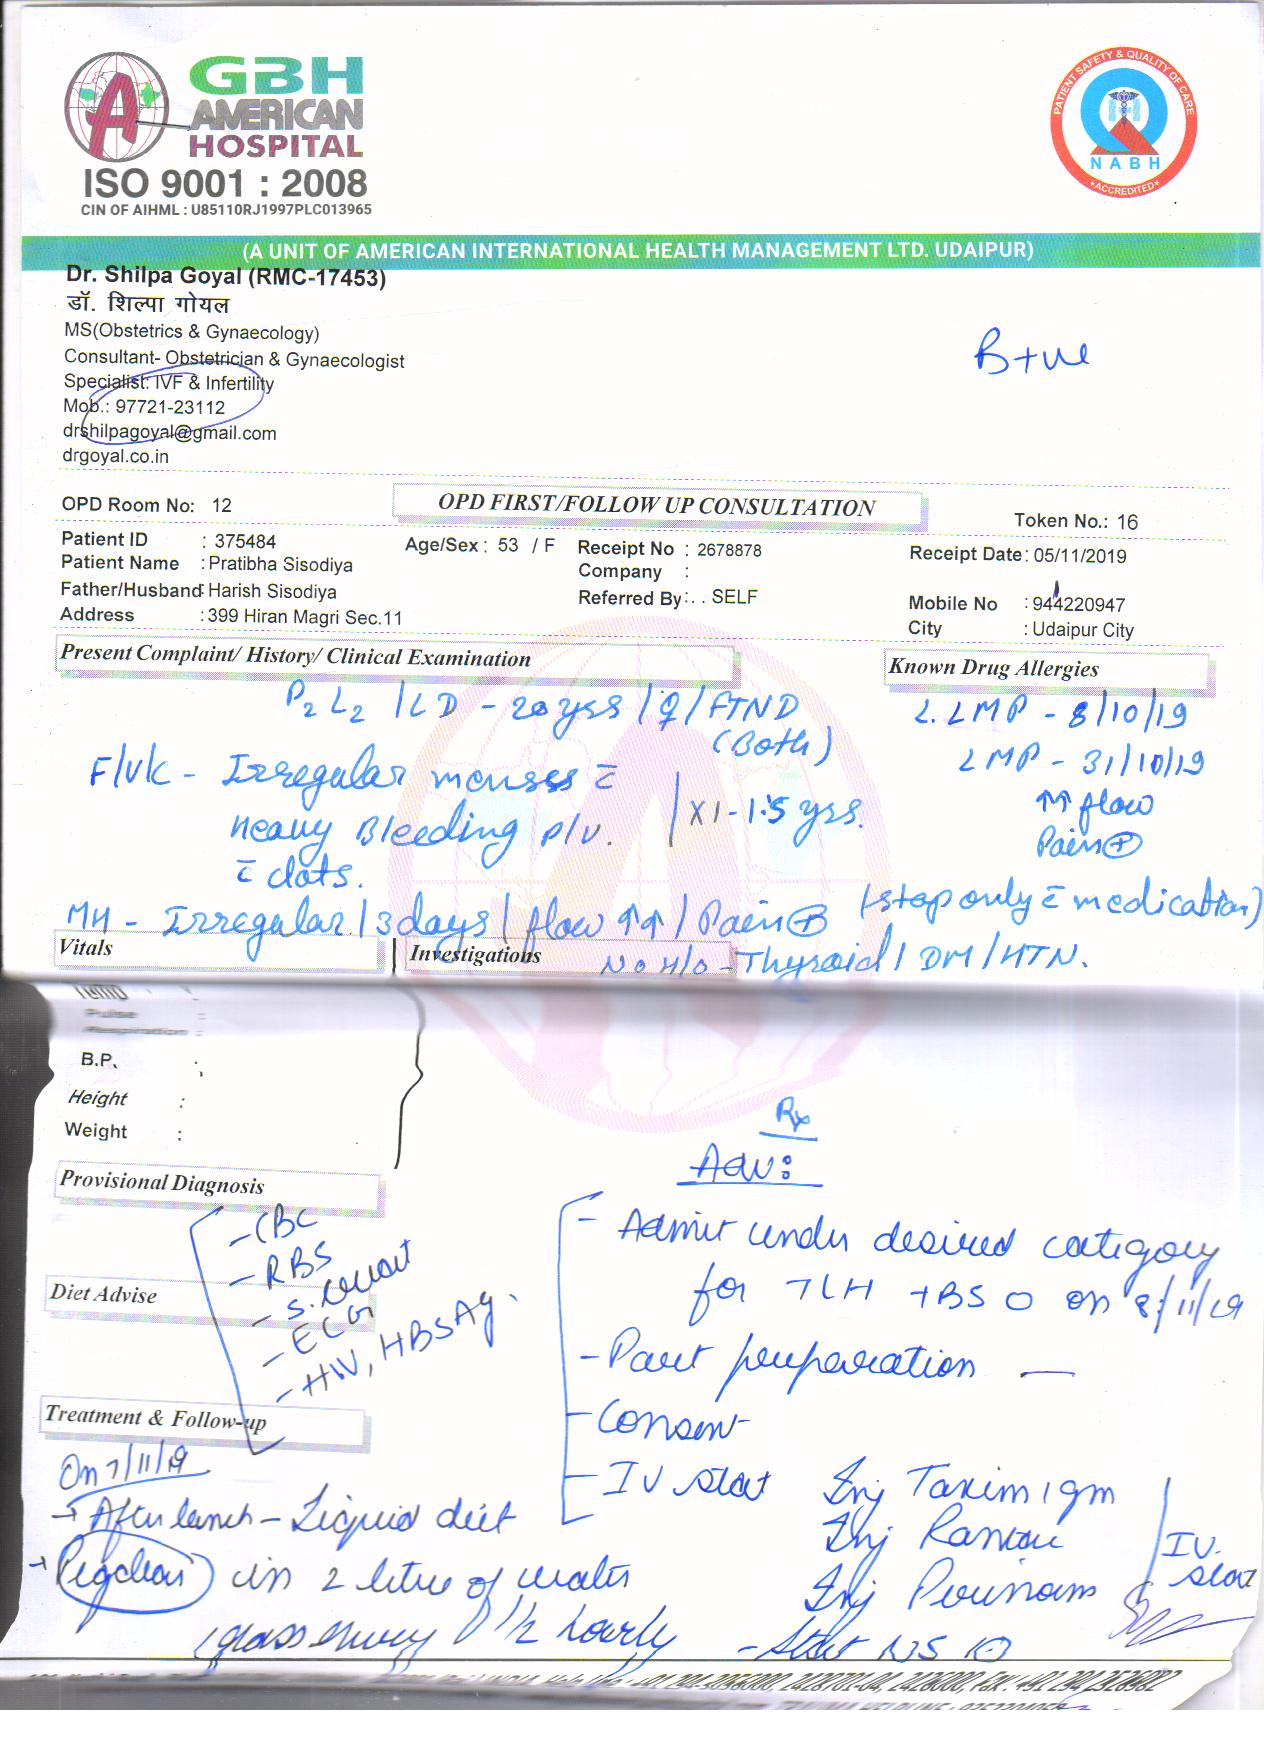 GBH
AMERICAN
HOSPITAL
ISO 9001 : 2008
CIN OF AIHML : U85110RJ1997PLC013965
PATIENT SAFETY & QUALITY OF CARE
NABH
ACCREDITED
(A UNIT OF AMERICAN INTERNATIONAL HEALTH MANAGEMENT LTD. UDAIPUR)
Dr. Shilpa Goyal (RMC-17453)
डॉ. शिल्पा गोयल
MS(Obstetrics & Gynaecology)
Consultant- Obstetrician & Gynaecologist
Specialist: IVF & Infertility
Mob.: 97721-23112
drshilpagoyal@gmail.com
drgoyal.co.in
B+ve
OPD Room No: 12
OPD FIRST/FOLLOW UP CONSULTATION
Token No.: 16
Patient ID : 375484 Age/Sex : 53 / F Receipt No : 2678878 Receipt Date : 05/11/2019
Patient Name : Pratibha Sisodiya Company :
Father/Husband : Harish Sisodiya Referred By : . . SELF Mobile No : 944220947
Address : 399 Hiran Magri Sec.11 City : Udaipur City
Present Complaint/ History/ Clinical Examination
Known Drug Allergies
P2 L2 / LD - 20 yrs / ♀ / FTND
(Both)
L. LMP - 8/10/19
LMP - 31/10/19
↑↑ flow
Pain ⊕
F/U/C - Irregular menses c̄
heavy Bleeding P/V.
c̄ clots.
X 1-1.5 yrs.
MH - Irregular / 3 days / flow ↑↑ / Pain ⊕ (stop only c̄ medication)
Vitals
Investigations
No H/O - Thyroid / DM / HTN.
Temp :
Pulse :
Respiration :
B.P. :
Height :
Weight :
Rx
Adv:
Provisional Diagnosis
- CBC
- RBS
- S. creat
- ECG
- HIV, HBSAg.
Diet Advise
Treatment & Follow-up
- Admit under desired category
for TLH + BSO on 8/11/19
- Part preparation
- Consent
- IV stat Inj Taxim 1 gm
Inj Rantac
Inj Perinorm
IV stat
- Start NS
On 7/11/19
→ After lunch - Liquid diet
→ Pegclear in 2 litre of water
1 glass every 1/2 hourly